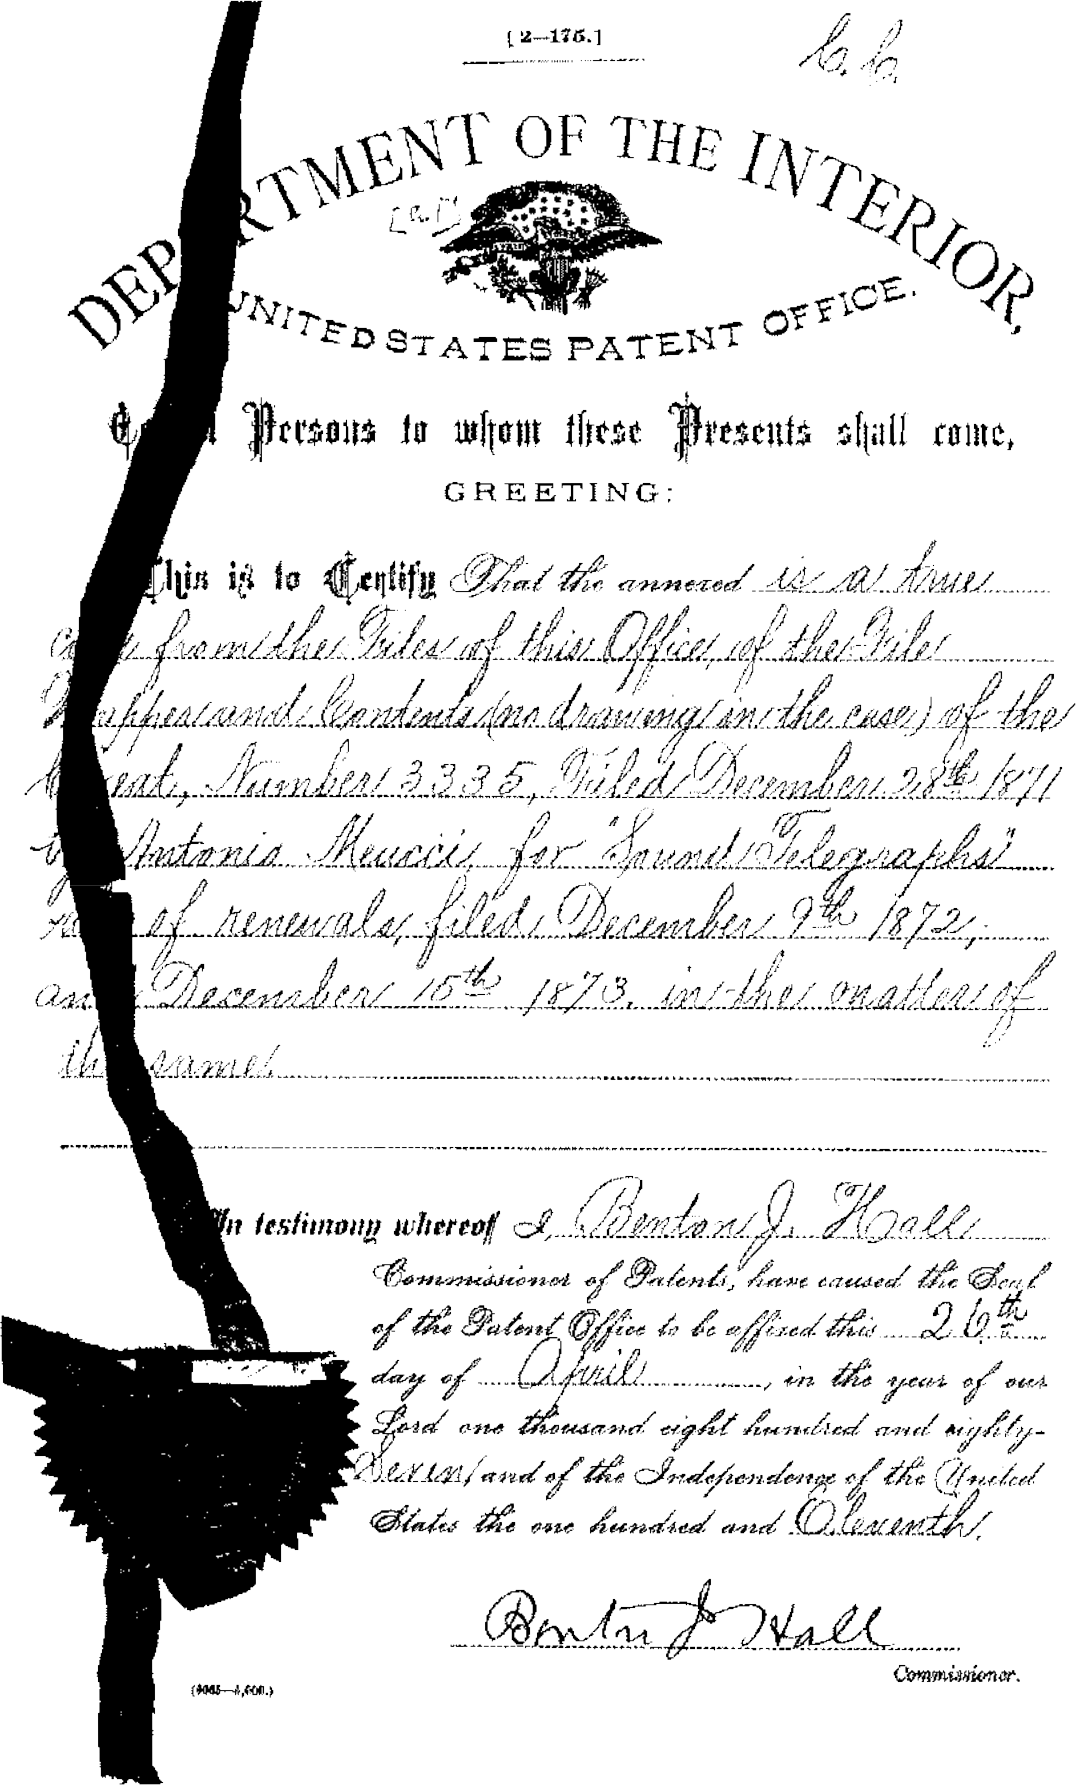 [2—175.]
DEPARTMENT OF THE INTERIOR,
UNITED STATES PATENT OFFICE.
Persons to whom these Presents shall come,
GREETING:
This is to Certify That the annexed is a true
from the Files of this Office, of the File
Wrapper and Contents (no drawing in the case) of the
Caveat, Number 3335, Filed December 28th 1871
by Antonio Meucci, for "Sound Telegraphs"
of renewals, filed December 9th 1872,
and December 15th 1873, in the matter of
the same.
In testimony whereof I, Benton J. Hall
Commissioner of Patents, have caused the Seal
of the Patent Office to be affixed this 26th
day of April, in the year of our
Lord one thousand eight hundred and eighty-
Seven and of the Independence of the United
States the one hundred and Eleventh.
Benton J Hall
Commissioner.